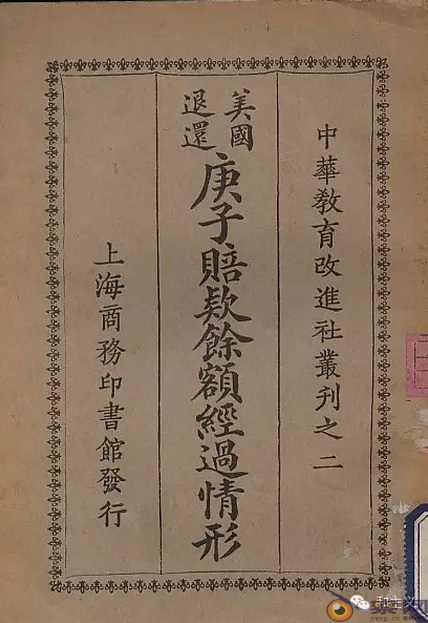 中華敎育改進社叢刊之二
美國
退還
庚子賠款餘額經過情形
上海商務印書館發行
和主义